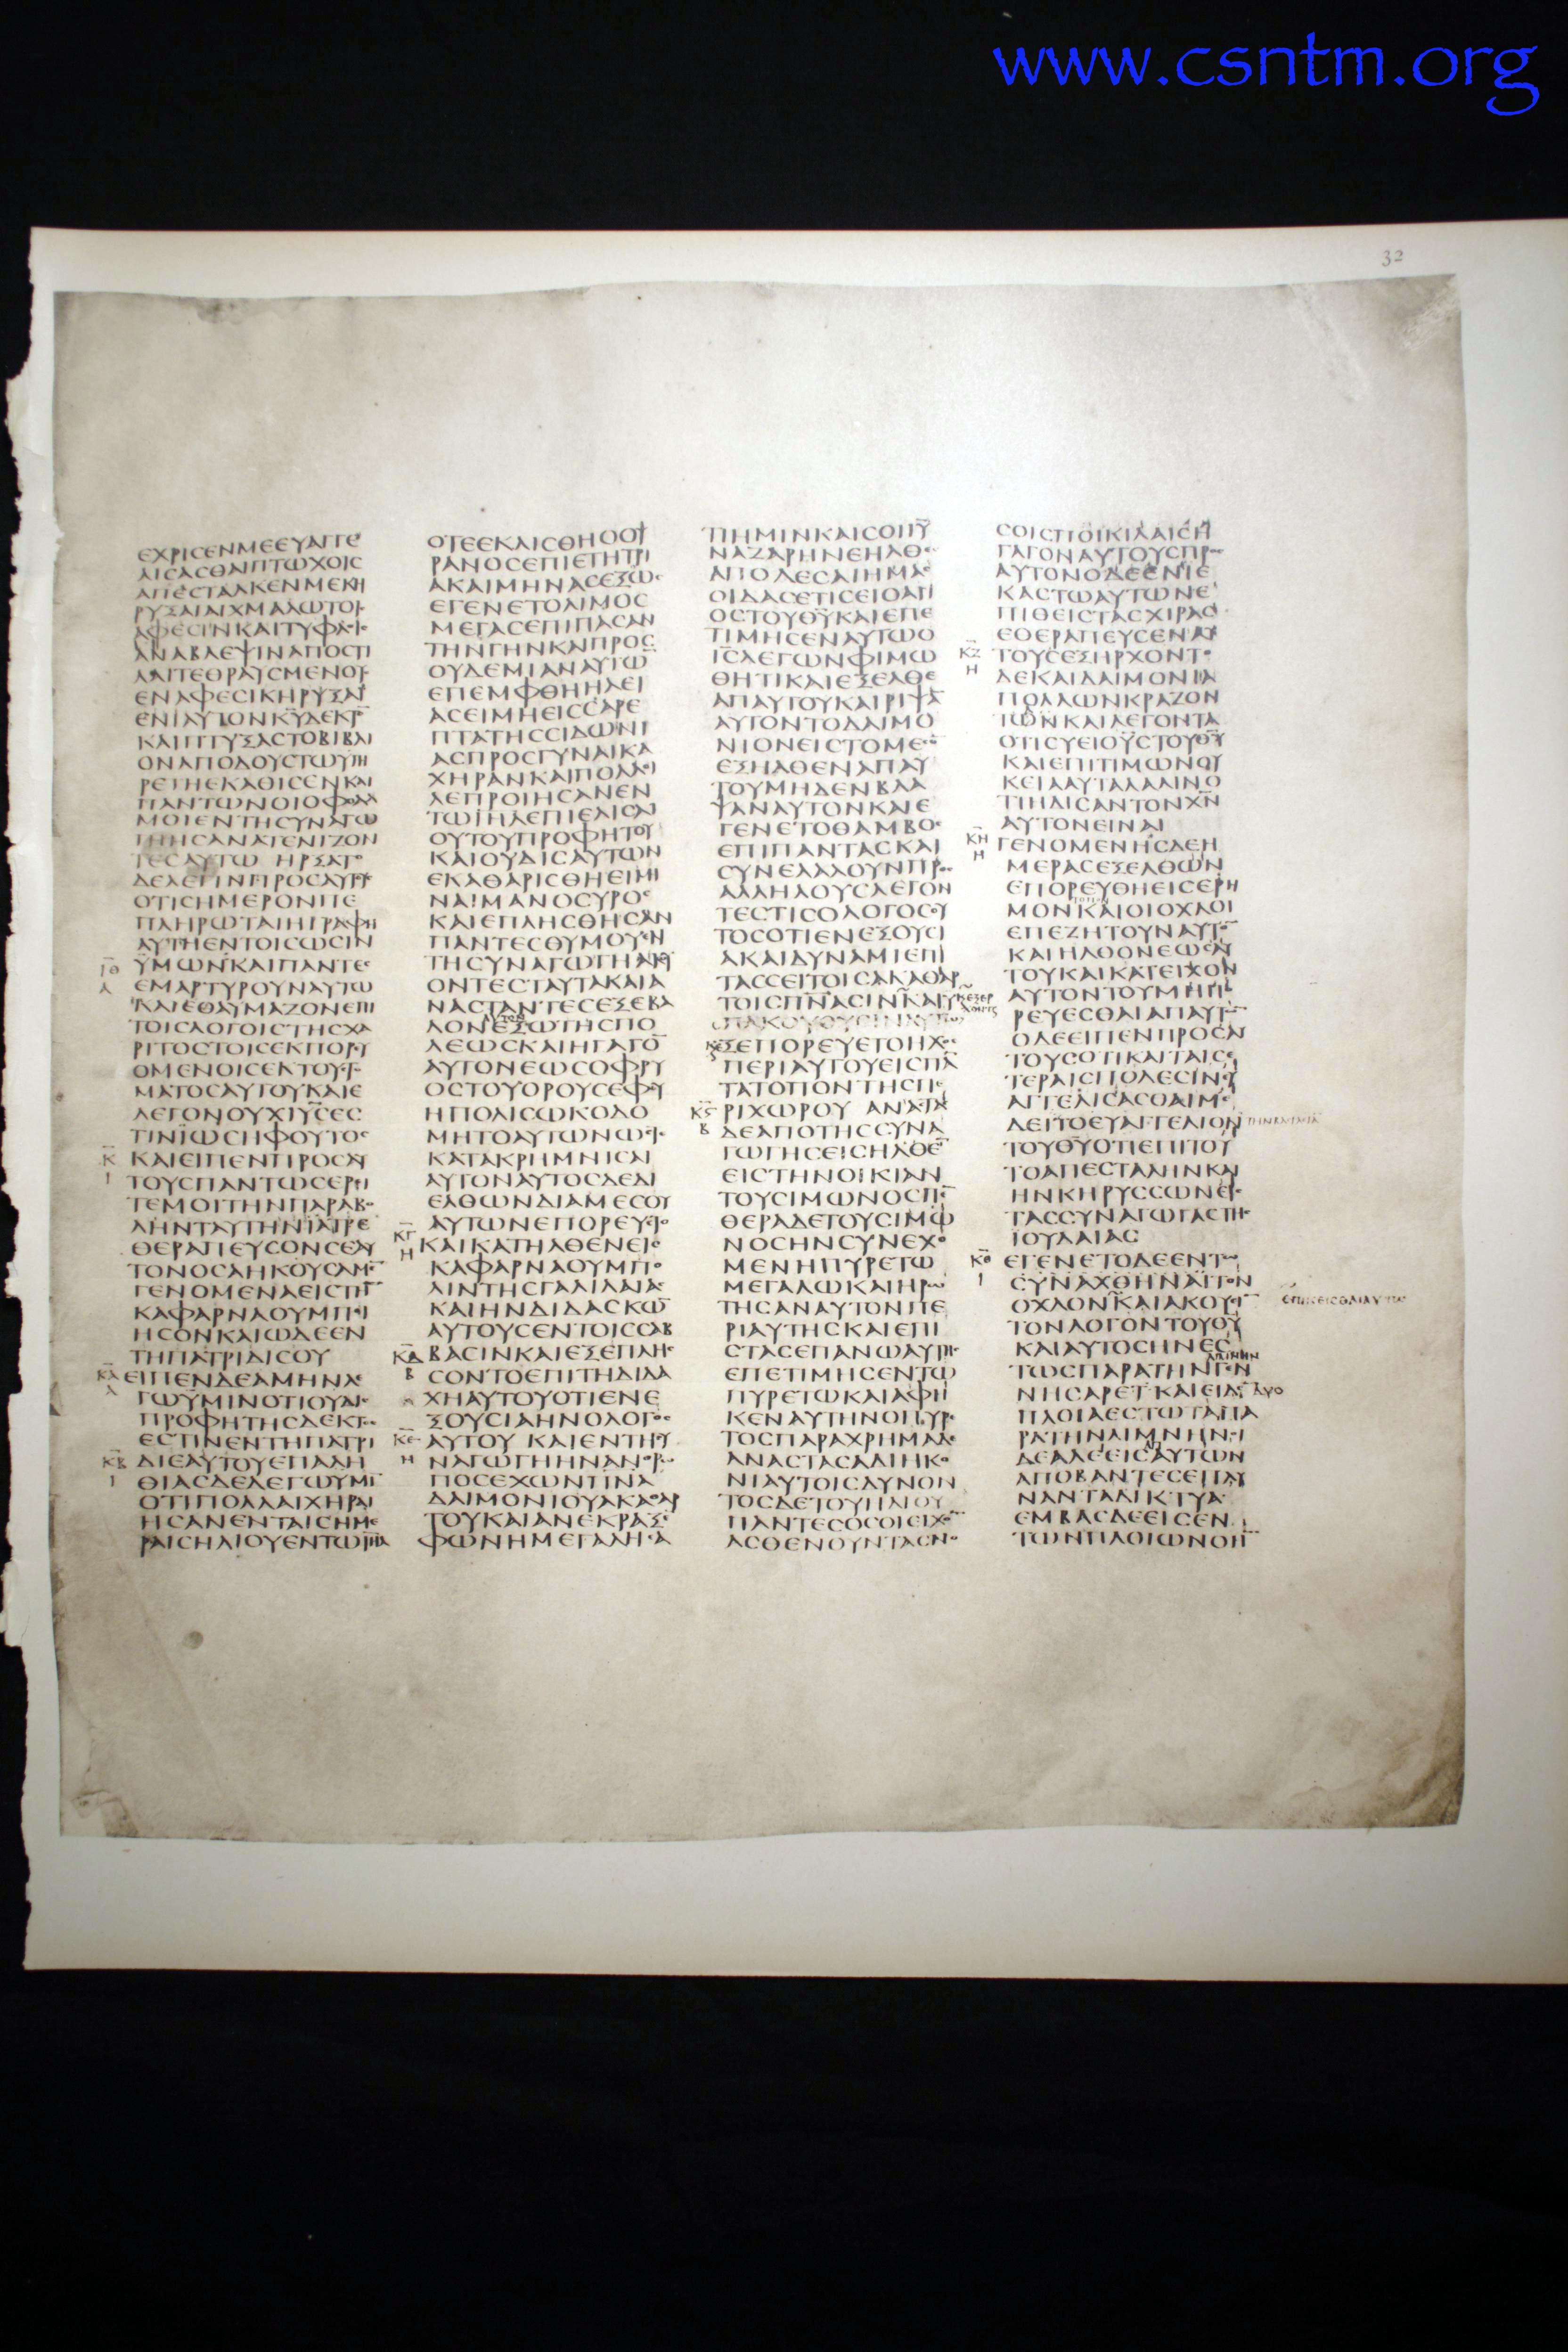 www.csntm.org
32
ΕΧΡΙCΕΝΜΕΕΥΑΓΓΕ
ΛΙCΑCΘΑΙΠΤΩΧΟΙC
ΑΠΕCΤΑΛΚΕΝΜΕΚΗ
ΡΥΞΑΙΑΙΧΜΑΛΩΤΟΙ
ΑΦΕCΙΝΚΑΙΤΥΦΛΟΙ
ΑΝΑΒΛΕΨΙΝΑΠΟCΤΙ
ΛΑΙΤΕΘΡΑΥCΜΕΝΟΥ
ΕΝΑΦΕCΙΚΗΡΥΞΑΙ
ΕΝΙΑΥΤΟΝΚΥΔΕΚΤΟ
ΚΑΙΠΤΥΞΑCΤΟΒΙΒΛΙ
ΟΝΑΠΟΔΟΥCΤΩΥΠΗ
ΡΕΤΗΕΚΑΘΙCΕΝΚΑΙ
ΠΑΝΤΩΝΟΙΟΦΘΑΛ
ΜΟΙΕΝΤΗCΥΝΑΓΩ
ΓΗΗCΑΝΑΤΕΝΙΖΟΝ
ΤΕCΑΥΤΩ ΗΡΞΑΤΟ
ΔΕΛΕΓΙΝΠΡΟCΑΥΤΟΥ
ΟΤΙCΗΜΕΡΟΝΠΕ
ΠΛΗΡΩΤΑΙΗΓΡΑΦΗ
ΑΥΤΗΕΝΤΟΙCΩCΙΝ
ΙΘ ΥΜΩΝΚΑΙΠΑΝΤΕC
Α ΕΜΑΡΤΥΡΟΥΝΑΥΤΩ
ΚΑΙΕΘΑΥΜΑΖΟΝΕΠΙ
ΤΟΙCΛΟΓΟΙCΤΗCΧΑ
ΡΙΤΟCΤΟΙCΕΚΠΟΡΥ
ΟΜΕΝΟΙCΕΚΤΟΥCΤΟ
ΜΑΤΟCΑΥΤΟΥΚΑΙΕ
ΛΕΓΟΝΟΥΧΙΥCΕC
ΤΙΝΙΩCΗΦΟΥΤΟC
Κ ΚΑΙΕΙΠΕΝΠΡΟCΑΥ
Ι ΤΟΥCΠΑΝΤΩCΕΡΕΙ
ΤΕΜΟΙΤΗΝΠΑΡΑΒΟ
ΛΗΝΤΑΥΤΗΝΙΑΤΡΕ
ΘΕΡΑΠΕΥCΟΝCΕΑΥ
ΤΟΝΟCΑΗΚΟΥCΑΜΕ
ΓΕΝΟΜΕΝΑΕΙCΤΗ
ΚΑΦΑΡΝΑΟΥΜΠΟΙ
ΗCΟΝΚΑΙΩΔΕΕΝ
ΤΗΠΑΤΡΙΔΙCΟΥ
ΚΑ ΕΙΠΕΝΔΕΑΜΗΝΛΕ
Α ΓΩΥΜΙΝΟΤΙΟΥΔΙC
ΠΡΟΦΗΤΗCΔΕΚΤΟC
ΕCΤΙΝΕΝΤΗΠΑΤΡΙ
ΚΒ ΔΙΕΑΥΤΟΥΕΠΑΛΗ
Ι ΘΙΑCΔΕΛΕΓΩΥΜΙ
ΟΤΙΠΟΛΛΑΙΧΗΡΑΙ
ΗCΑΝΕΝΤΑΙCΗΜΕ
ΡΑΙCΗΛΙΟΥΕΝΤΩΙΗΛ
ΟΤΕΕΚΛΙCΘΗΟΟΥ
ΡΑΝΟCΕΠΙΕΤΗΤΡΙ
ΑΚΑΙΜΗΝΑCΕΞΩC
ΕΓΕΝΕΤΟΛΙΜΟC
ΜΕΓΑCΕΠΙΠΑCΑΝ
ΤΗΝΓΗΝΚΑΙΠΡΟC
ΟΥΔΕΜΙΑΝΑΥΤΩ
ΕΠΕΜΦΘΗΗΛΕΙ
ΑCΕΙΜΗΕΙCCΑΡΕ
ΠΤΑΤΗCCΙΔΩΝΙ
ΑCΠΡΟCΓΥΝΑΙΚΑ
ΧΗΡΑΝΚΑΙΠΟΛΛΟΙ
ΛΕΠΡΟΙΗCΑΝΕΝ
ΤΩΙΗΛΕΠΙΕΛΙCΑΙ
ΟΥΤΟΥΠΡΟΦΗΤΟΥ
ΚΑΙΟΥΔΙCΑΥΤΩΝ
ΕΚΑΘΑΡΙCΘΗΕΙΜΗ
ΝΑΙΜΑΝΟCΥΡΟC
ΚΑΙΕΠΛΗCΘΗCΑΝ
ΠΑΝΤΕCΘΥΜΟΥΕΝ
ΤΗCΥΝΑΓΩΓΗΑΚΟΥ
ΟΝΤΕCΤΑΥΤΑΚΑΙΑ
ΝΑCΤΑΝΤΕCΕΞΕΒΑ
ΛΟΝΕΞΩΤΗCΠΟ
ΛΕΩCΚΑΙΗΓΑΓΟ
ΑΥΤΟΝΕΩCΟΦΡΥ
ΟCΤΟΥΟΡΟΥCΕΦΟΥ
ΗΠΟΛΙCΩΚΟΔΟ
ΜΗΤΟΑΥΤΩΝΩCΤΕ
ΚΑΤΑΚΡΗΜΝΙCΑΙ
ΑΥΤΟΝΑΥΤΟCΔΕΔΙ
ΕΛΘΩΝΔΙΑΜΕCΟΥ
ΑΥΤΩΝΕΠΟΡΕΥΕΤΟ
ΚΓ ΚΑΙΚΑΤΗΛΘΕΝΕΙC
Η ΚΑΦΑΡΝΑΟΥΜΠΟ
ΛΙΝΤΗCΓΑΛΙΛΑΙΑC
ΚΑΙΗΝΔΙΔΑCΚΩ
ΑΥΤΟΥCΕΝΤΟΙCCΑΒ
ΚΔ ΒΑCΙΝΚΑΙΕΞΕΠΛΗC
Β CΟΝΤΟΕΠΙΤΗΔΙΔΑ
ΧΗΑΥΤΟΥΟΤΙΕΝΕ
ΞΟΥCΙΑΗΝΟΛΟΓΟC
ΚΕ ΑΥΤΟΥ ΚΑΙΕΝΤΗCΥ
Η ΝΑΓΩΓΗΗΝΑΝΘΡΩ
ΠΟCΕΧΩΝΠΝΑ
ΔΑΙΜΟΝΙΟΥΑΚΑΘΑΡ
ΤΟΥΚΑΙΑΝΕΚΡΑΞΕ
ΦΩΝΗΜΕΓΑΛΗΕΑ
ΤΙΗΜΙΝΚΑΙCΟΙΙΥ
ΝΑΖΑΡΗΝΕΗΛΘΕC
ΑΠΟΛΕCΑΙΗΜΑC
ΟΙΔΑCΕΤΙCΕΙΟΑΓΙ
ΟCΤΟΥΘΥΚΑΙΕΠΕ
ΤΙΜΗCΕΝΑΥΤΩΟ
ΙCΛΕΓΩΝΦΙΜΩ
ΘΗΤΙΚΑΙΕΞΕΛΘΕ
ΑΠΑΥΤΟΥΚΑΙΡΙΨΑ
ΑΥΤΟΝΤΟΔΑΙΜΟ
ΝΙΟΝΕΙCΤΟΜΕCΟ
ΕΞΗΛΘΕΝΑΠΑΥ
ΤΟΥΜΗΔΕΝΒΛΑ
ΨΑΝΑΥΤΟΝΚΑΙΕ
ΓΕΝΕΤΟΘΑΜΒΟC
ΕΠΙΠΑΝΤΑCΚΑΙ
CΥΝΕΛΑΛΟΥΝΠΡΟC
ΑΛΛΗΛΟΥCΛΕΓΟΝ
ΤΕCΤΙCΟΛΟΓΟCΟΥ
ΤΟCΟΤΙΕΝΕΞΟΥCΙ
ΑΚΑΙΔΥΝΑΜΙΕΠΙ
ΤΑCCΕΙΤΟΙCΑΚΑΘΑΡ
ΤΟΙCΠΝΑCΙΝΚΑΙΥ
ΞΕΠΟΡΕΥΕΤΟΗΧΟC
ΠΕΡΙΑΥΤΟΥΕΙCΠΑ
ΤΑΤΟΠΟΝΤΗCΠΕ
ΚϚ ΡΙΧΩΡΟΥ ΑΝΑCΤΑC
Β ΔΕΑΠΟΤΗCCΥΝΑ
ΓΩΓΗCΕΙCΗΛΘΕ
ΕΙCΤΗΝΟΙΚΙΑΝ
ΤΟΥCΙΜΩΝΟCΠΕ
ΘΕΡΑΔΕΤΟΥCΙΜΩ
ΝΟCΗΝCΥΝΕΧΟ
ΜΕΝΗΠΥΡΕΤΩ
ΜΕΓΑΛΩΚΑΙΗΡΩ
ΤΗCΑΝΑΥΤΟΝΠΕ
ΡΙΑΥΤΗCΚΑΙΕΠΙ
CΤΑCΕΠΑΝΩΑΥΤΗC
ΕΠΕΤΙΜΗCΕΝΤΩ
ΠΥΡΕΤΩΚΑΙΑΦΗ
ΚΕΝΑΥΤΗΝΟΠΥΡΕ
ΤΟCΠΑΡΑΧΡΗΜΑΔΕ
ΑΝΑCΤΑCΑΔΙΗΚΟ
ΝΙΑΥΤΟΙCΔΥΝΟΝ
ΤΟCΔΕΤΟΥΗΛΙΟΥ
ΠΑΝΤΕCΟCΟΙΕΙΧΟ
ΑCΘΕΝΟΥΝΤΑCΝΟ
CΟΙCΠΟΙΚΙΛΑΙCΗ
ΓΑΓΟΝΑΥΤΟΥCΠΡΟC
ΑΥΤΟΝΟΔΕΕΝΙΕ
ΚΑCΤΩΑΥΤΩΝΕ
ΠΙΘΕΙCΤΑCΧΙΡΑC
ΕΘΕΡΑΠΕΥCΕΝΑΥ
ΚΖ ΤΟΥCΕΞΗΡΧΟΝΤΟ
Η ΔΕΚΑΙΔΑΙΜΟΝΙΑ
ΠΟΛΛΩΝΚΡΑΖΟΝ
ΤΩΝΚΑΙΛΕΓΟΝΤΑ
ΟΤΙCΥΕΙΟΥCΤΟΥΘΥ
ΚΑΙΕΠΙΤΙΜΩΝΟΥ
ΚΕΙΑΑΥΤΑΛΑΛΙΝΟ
ΤΙΗΔΙCΑΝΤΟΝΧΝ
ΑΥΤΟΝΕΙΝΑΙ
ΚΗ ΓΕΝΟΜΕΝΗCΔΕΗ
Η ΜΕΡΑCΕΞΕΛΘΩΝ
ΕΠΟΡΕΥΘΗΕΙCΕΡΗ
ΜΟΝΚΑΙΟΙΟΧΛΟΙ
ΕΠΕΖΗΤΟΥΝΑΥΤΟ
ΚΑΙΗΛΘΟΝΕΩCΑΥ
ΤΟΥΚΑΙΚΑΤΕΙΧΟΝ
ΑΥΤΟΝΤΟΥΜΗΠΟ
ΡΕΥΕCΘΑΙΑΠΑΥΤΩ
ΟΔΕΕΙΠΕΝΠΡΟCΑΥ
ΤΟΥCΟΤΙΚΑΙΤΑΙCΕ
ΤΕΡΑΙCΠΟΛΕCΙΝΕΥ
ΑΓΓΕΛΙCΑCΘΑΙΜΕ
ΔΕΙΤΟΕΥΑΓΓΕΛΙΟΝ
ΤΟΥΘΥΟΤΙΕΠΙΤΟΥ
ΤΟΑΠΕCΤΑΛΗΝΚΑΙ
ΗΝΚΗΡΥCCΩΝΕΙC
ΤΑCCΥΝΑΓΩΓΑCΤΗC
ΙΟΥΔΑΙΑC
ΚΘ ΕΓΕΝΕΤΟΔΕΕΝΤΩ
Ι CΥΝΑΧΘΗΝΑΙΤΟΝ
ΟΧΛΟΝΚΑΙΑΚΟΥΕΙ
ΤΟΝΛΟΓΟΝΤΟΥΘΥ
ΚΑΙΑΥΤΟCΗΝΕC
ΤΩCΠΑΡΑΤΗΝΓΕΝ
ΝΗCΑΡΕΤΚΑΙΕΙΔΕ
ΠΛΟΙΑΕCΤΩΤΑΠΑ
ΡΑΤΗΝΛΙΜΝΗΝΟΙ
ΔΕΑΛΕΕΙCΑΥΤΩΝ
ΑΠΟΒΑΝΤΕCΕΠΛΥ
ΝΑΝΤΑΔΙΚΤΥΑ
ΕΜΒΑCΔΕΕΙCΕΝ
ΤΩΝΠΛΟΙΩΝΟΗ